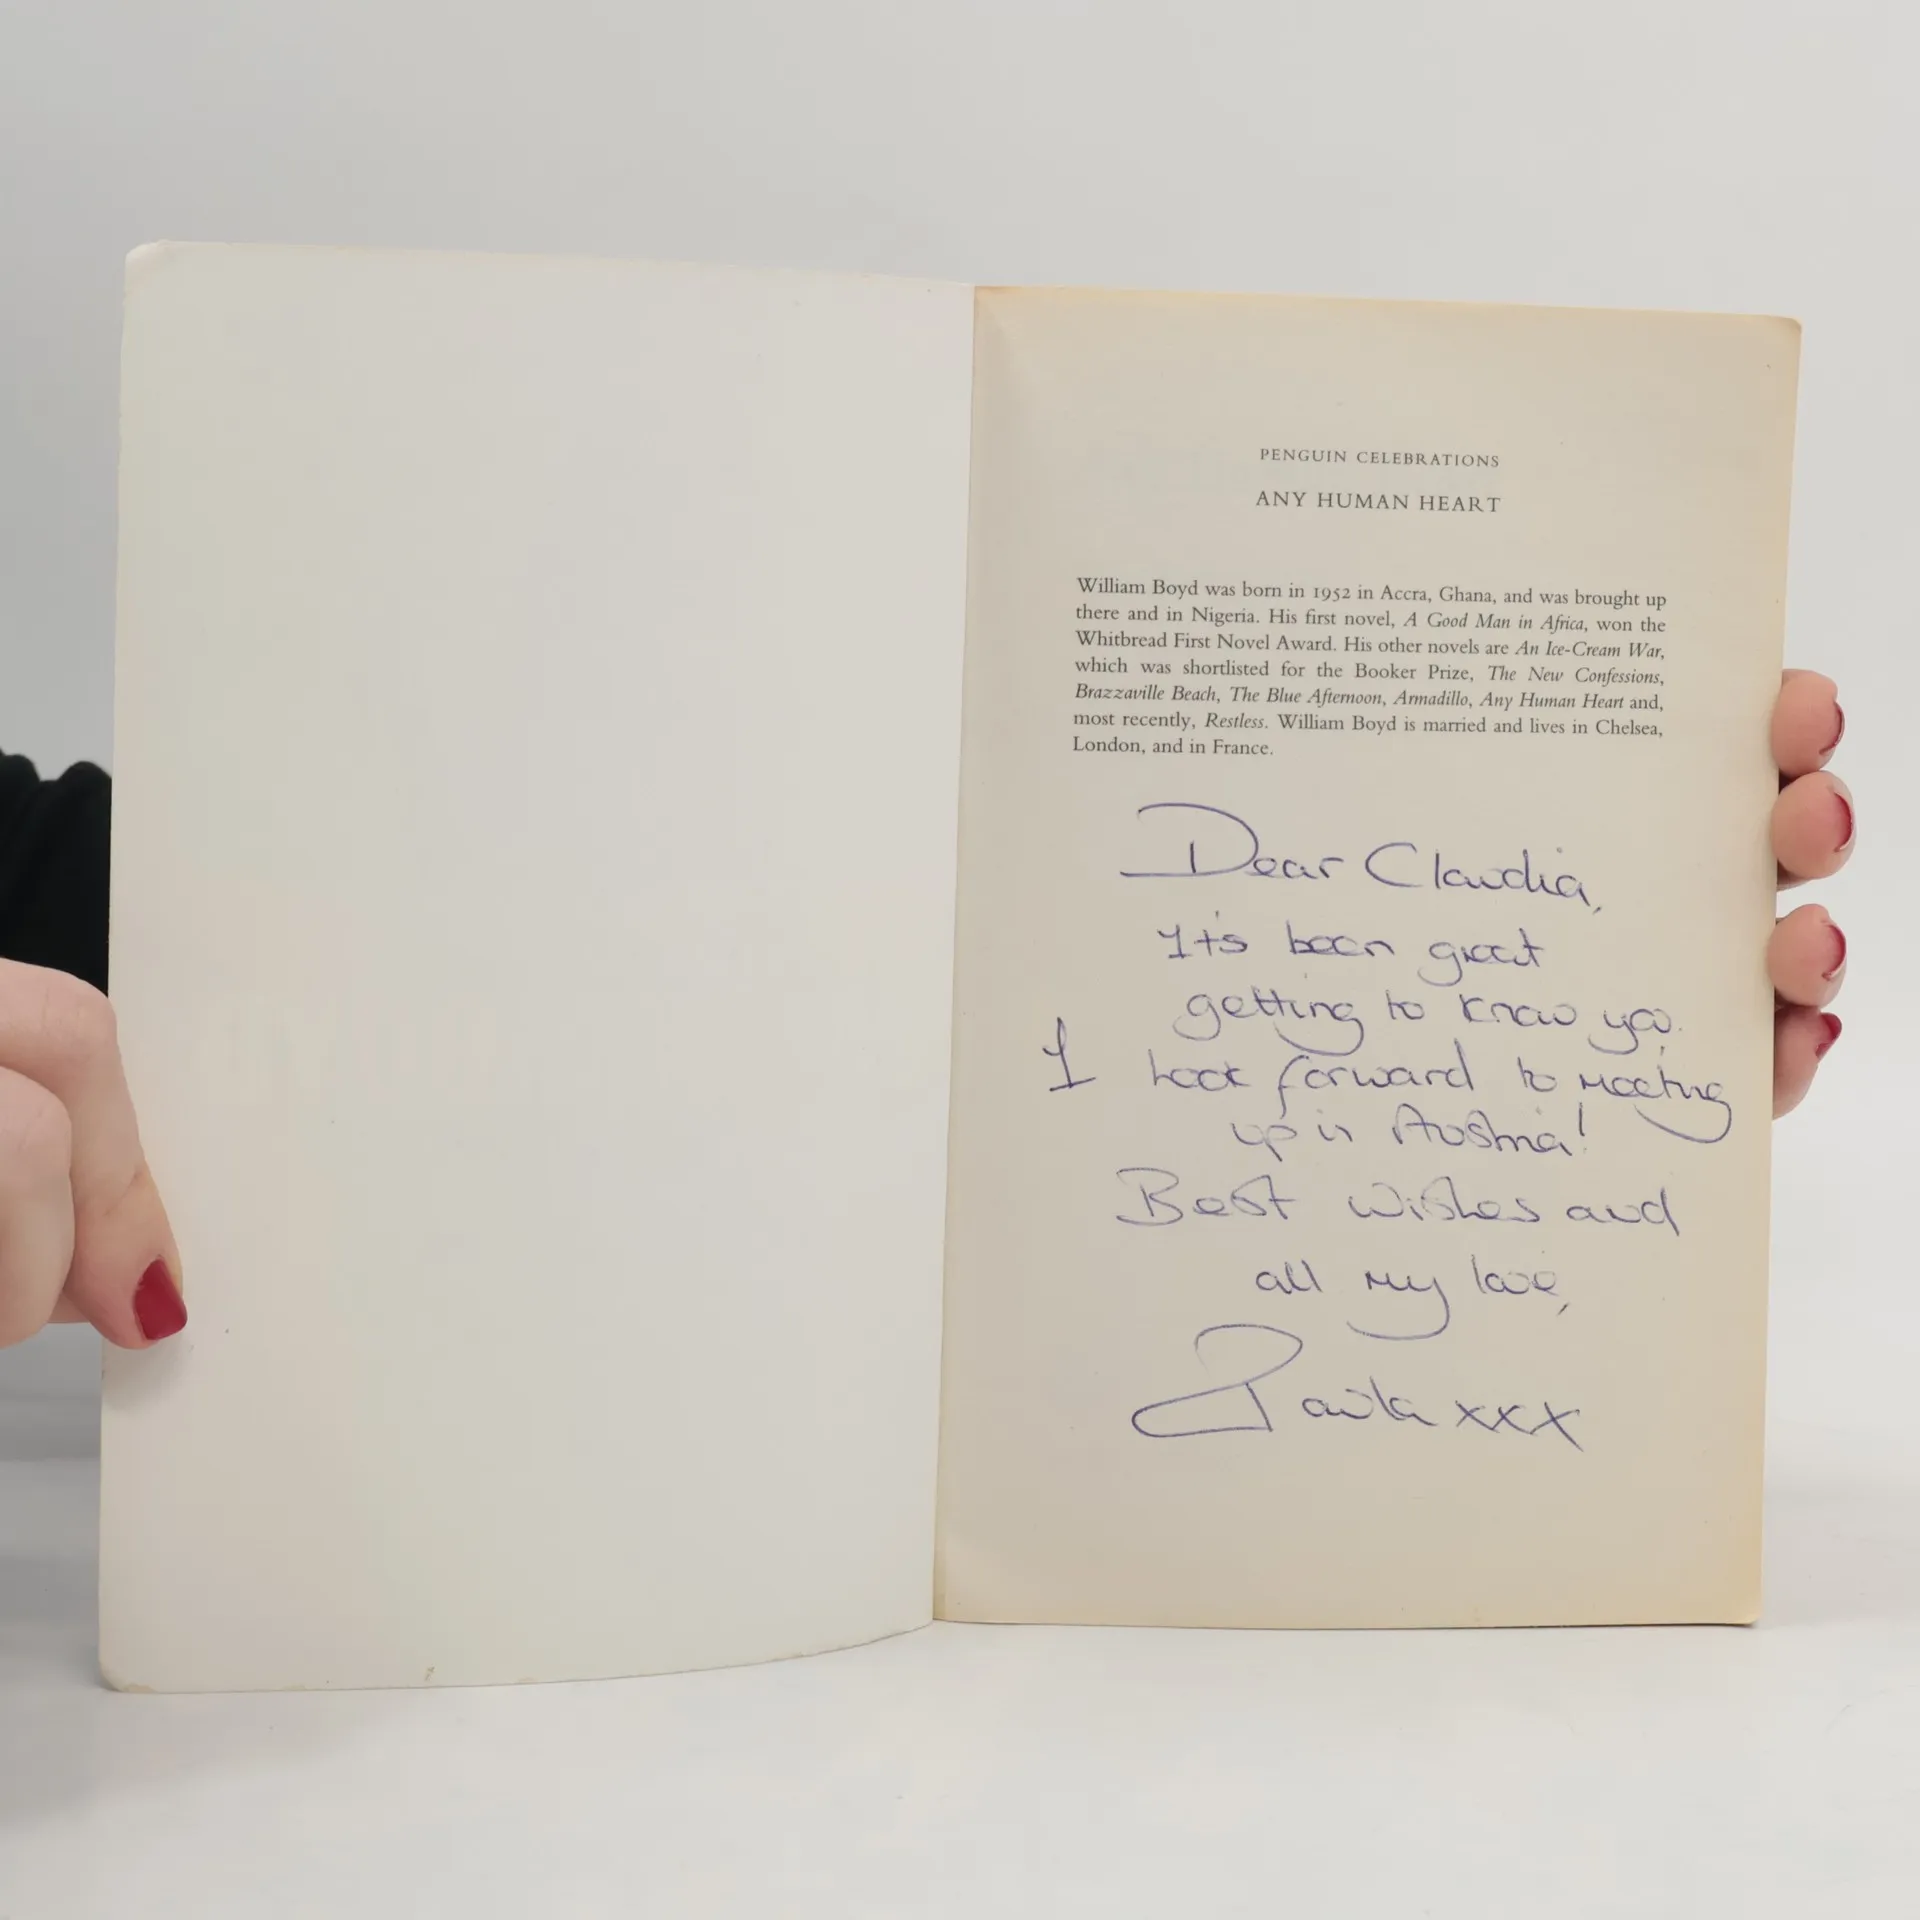 PENGUIN CELEBRATIONS
ANY HUMAN HEART
William Boyd was born in 1952 in Accra, Ghana, and was brought up
there and in Nigeria. His first novel, A Good Man in Africa, won the
Whitbread First Novel Award. His other novels are An Ice-Cream War,
which was shortlisted for the Booker Prize, The New Confessions,
Brazzaville Beach, The Blue Afternoon, Armadillo, Any Human Heart and,
most recently, Restless. William Boyd is married and lives in Chelsea,
London, and in France.
Dear Claudia,
It's been great
getting to know you.
I look forward to meeting
up in Austria!
Best wishes and
all my love,
Paula xxx